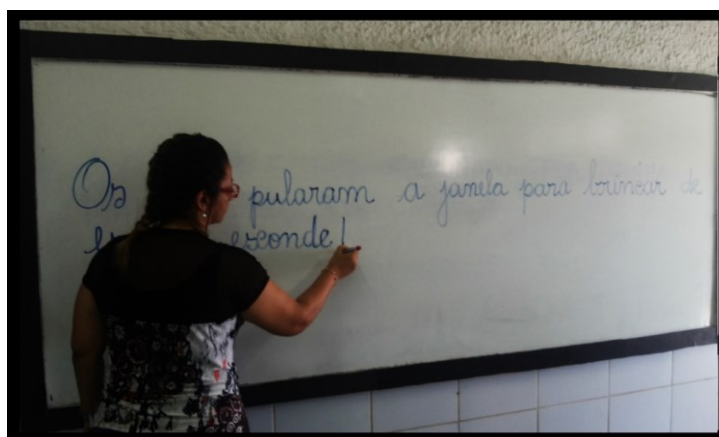 Os pularam a janela para brincar de
esconde!